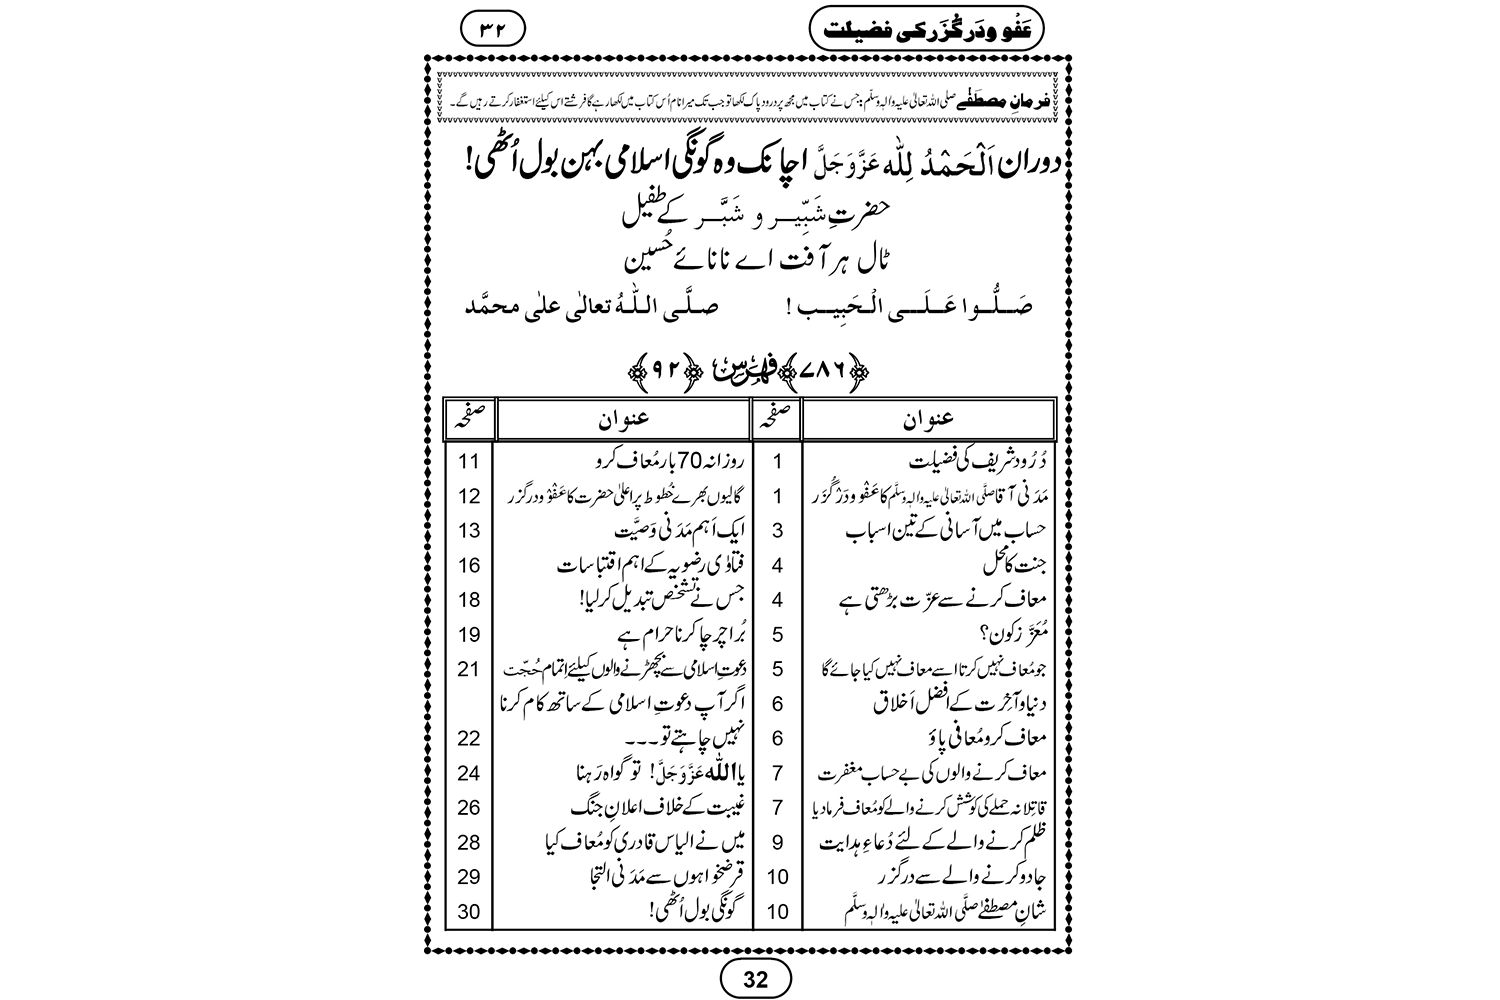 عَفْو ودَر گُزَر کی فضیلت
۳۲
فرمانِ مصطَفٰے صلی اللہ تعالیٰ علیہ واٰلہٖ وسلّم: جس نے کتاب میں مجھ پر درود پاک لکھا تو جب تک میرا نام اُس کتاب میں لکھا رہے گا فرشتے اس کیلئے استغفار کرتے رہیں گے۔
دوران اَلْحَمْدُ لِلّٰه عَزَّوَجَلَّ اچانک وہ گونگی اسلامی بہن بول اُٹھی!
حضرتِ شَبِّیر و شَبَّر کے طفیل
ٹال ہر آفت اے نانائے حُسین
صَلُّوا عَلَی الْحَبِیب ! صلَّی اللّٰہُ تعالیٰ علیٰ محمَّد
﴿۷۸۶﴾ فہرس ﴿۹۲﴾
عنوان صفحہ عنوان صفحہ
دُرُود شریف کی فضیلت 1 روزانہ 70 بار مُعاف کرو 11
مَدَنی آقا صلَّی اللہ تعالیٰ علیہ واٰلہٖ وسلَّم کا عَفْو و دَرْ گُزَر 1 گالیوں بھرے خُطُوط پر اعلیٰ حضرت کا عَفْو و در گزر 12
حساب میں آسانی کے تین اسباب 3 ایک اَہم مَدَنی وَصِیَّت 13
جنت کا محل 4 فتاوٰی رضویہ کے اہم اقتباسات 16
معاف کرنے سے عزّت بڑھتی ہے 4 جس نے تشخص تبدیل کر لیا! 18
مُعَزَّز کون؟ 5 بُرا چرچا کرنا حرام ہے 19
جو مُعاف نہیں کرتا اسے معاف نہیں کیا جائے گا 5 دعوتِ اسلامی سے بچھڑنے والوں کیلئے اِتمامِ حُجّت 21
دنیا و آخِرت کے افضل اَخلاق 6 اگر آپ دعوتِ اسلامی کے ساتھ کام کرنا
معاف کرو مُعافی پاؤ 6 نہیں چاہتے تو۔۔۔ 22
معاف کرنے والوں کی بے حساب مغفرت 7 یا اللّٰہ عَزَّوَجَلَّ! تو گواہ رَہنا 24
قاتِلانہ حملے کی کوشش کرنے والے کو مُعاف فرمادیا 7 غیبت کے خلاف اعلانِ جنگ 26
ظلم کرنے والے کے لئے دُعاءِ ہدایت 9 میں نے الیاس قادری کو مُعاف کیا 28
جادو کرنے والے سے درگزر 10 قرضخواہوں سے مَدَنی التجا 29
شانِ مصطفےٰ صلَّی اللہ تعالیٰ علیہ واٰلہٖ وسلَّم 10 گونگی بول اُٹھی! 30
32